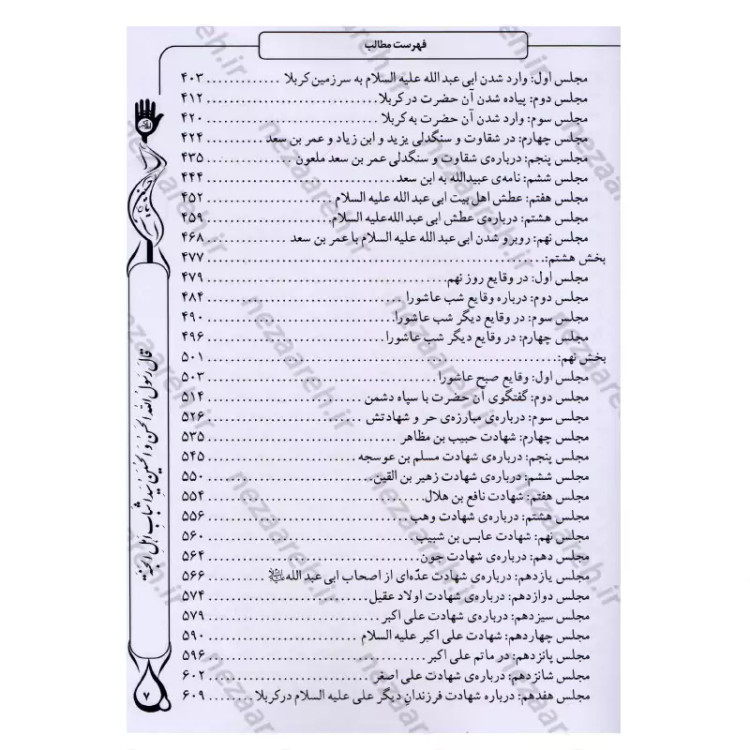 فهرست مطالب
مجلس اول: وارد شدن ابی عبد الله علیه السلام به سرزمین کربلا ............. ۴۰۳
مجلس دوم: پیاده شدن آن حضرت در کربلا ............................ ۴۱۲
مجلس سوم: وارد شدن آن حضرت به کربلا ............................ ۴۲۰
مجلس چهارم: در شقاوت و سنگدلی یزید و ابن زیاد و عمر بن سعد ......... ۴۲۴
مجلس پنجم: درباره‌ی شقاوت و سنگدلی عمر بن سعد ملعون ............ ۴۳۵
مجلس ششم: نامه‌ی عبیدالله به ابن سعد ........................... ۴۴۴
مجلس هفتم: عطش اهل بیت ابی عبد الله علیه السلام .................. ۴۵۲
مجلس هشتم: درباره‌ی عطش ابی عبد الله علیه السلام .................. ۴۵۹
مجلس نهم: روبرو شدن ابی عبد الله علیه السلام با عمر بن سعد ........... ۴۶۸
بخش هشتم: ............................................... ۴۷۷
مجلس اول: در وقایع روز نهم ................................... ۴۷۹
مجلس دوم: درباره وقایع شب عاشورا ............................. ۴۸۴
مجلس سوم: در وقایع دیگر شب عاشورا ............................ ۴۹۰
مجلس چهارم: در وقایع دیگر شب عاشورا .......................... ۴۹۶
بخش نهم: ................................................ ۵۰۱
مجلس اول: وقایع صبح عاشورا .................................. ۵۰۳
مجلس دوم: گفتگوی آن حضرت با سپاه دشمن ....................... ۵۱۴
مجلس سوم: درباره‌ی مبارزه‌ی حر و شهادتش ....................... ۵۲۶
مجلس چهارم: شهادت حبیب بن مظاهر ............................ ۵۳۵
مجلس پنجم: درباره‌ی شهادت مسلم بن عوسجه ..................... ۵۴۵
مجلس ششم: درباره‌ی شهادت زهیر بن القین ....................... ۵۵۰
مجلس هفتم: شهادت نافع بن هلال ............................... ۵۵۴
مجلس هشتم: درباره‌ی شهادت وهب .............................. ۵۵۶
مجلس نهم: شهادت عابس بن شبیب .............................. ۵۶۰
مجلس دهم: درباره‌ی شهادت جون ............................... ۵۶۴
مجلس یازدهم: درباره‌ی شهادت عدّه‌ای از اصحاب ابی عبد الله ......... ۵۶۶
مجلس دوازدهم: درباره‌ی شهادت اولاد عقیل ....................... ۵۷۴
مجلس سیزدهم: درباره‌ی شهادت علی اکبر ......................... ۵۷۹
مجلس چهاردهم: شهادت علی اکبر علیه السلام ..................... ۵۹۰
مجلس پانزدهم: در ماتم علی اکبر ............................... ۵۹۶
مجلس شانزدهم: درباره‌ی شهادت علی اصغر ....................... ۶۰۲
مجلس هفدهم: درباره شهادت فرزندان دیگر علی علیه السلام در کربلا ....... ۶۰۹
قال رسول الله الحسن و الحسین سیدا شباب اهل الجنة
۷
nezaareh.ir